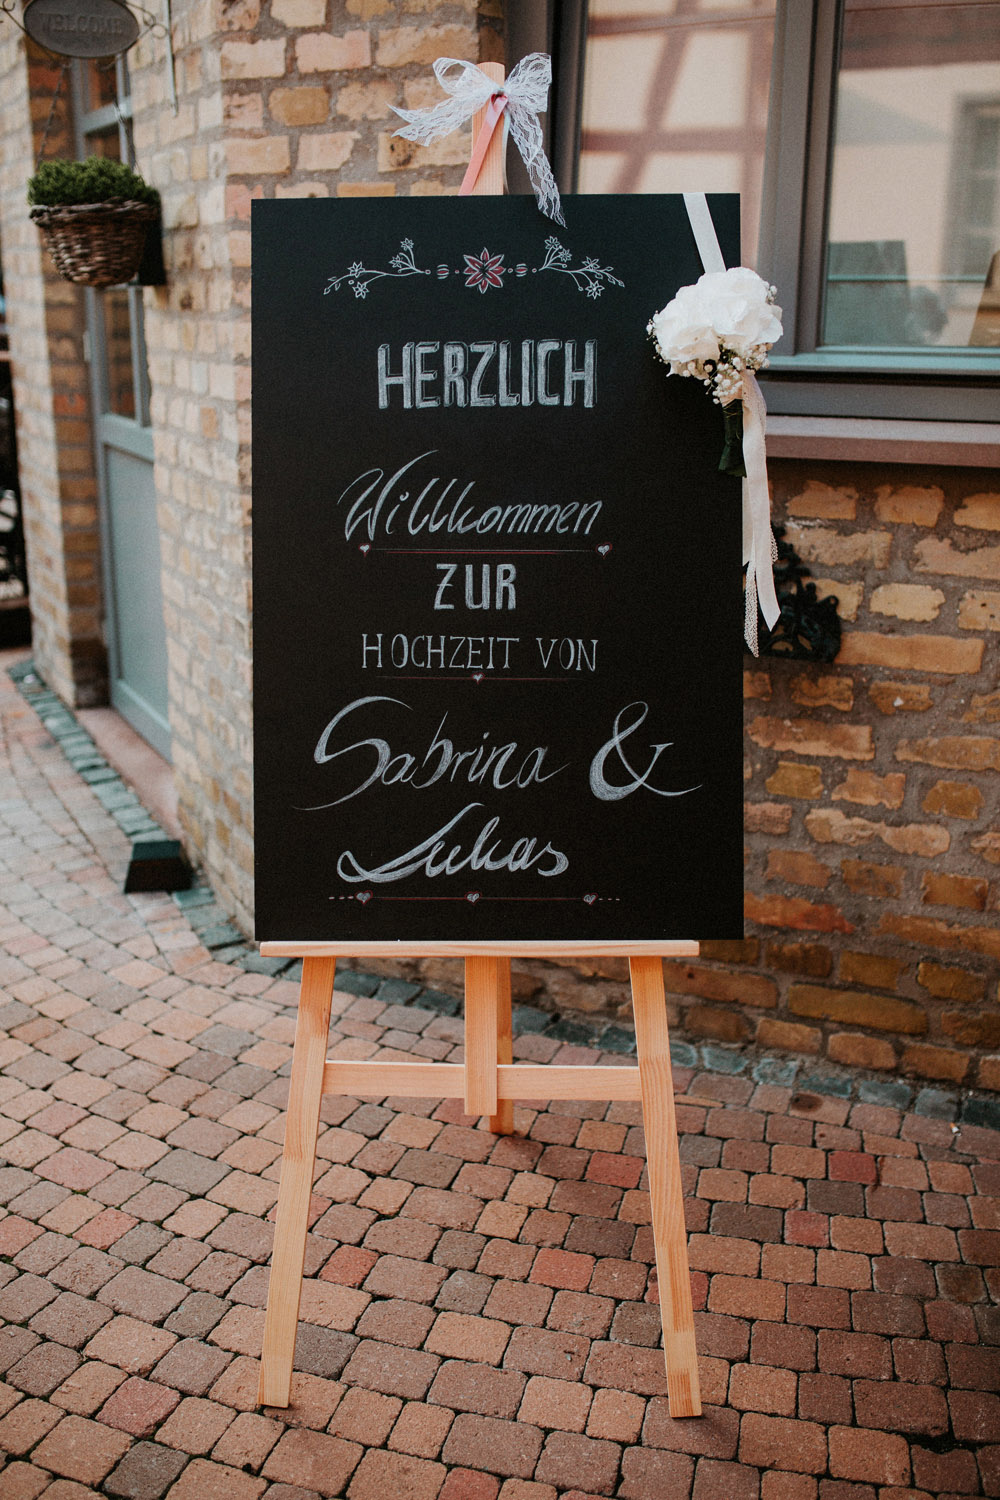 WELCOME
HERZLICH
Willkommen
ZUR
HOCHZEIT VON
Sabrina &
Lukas